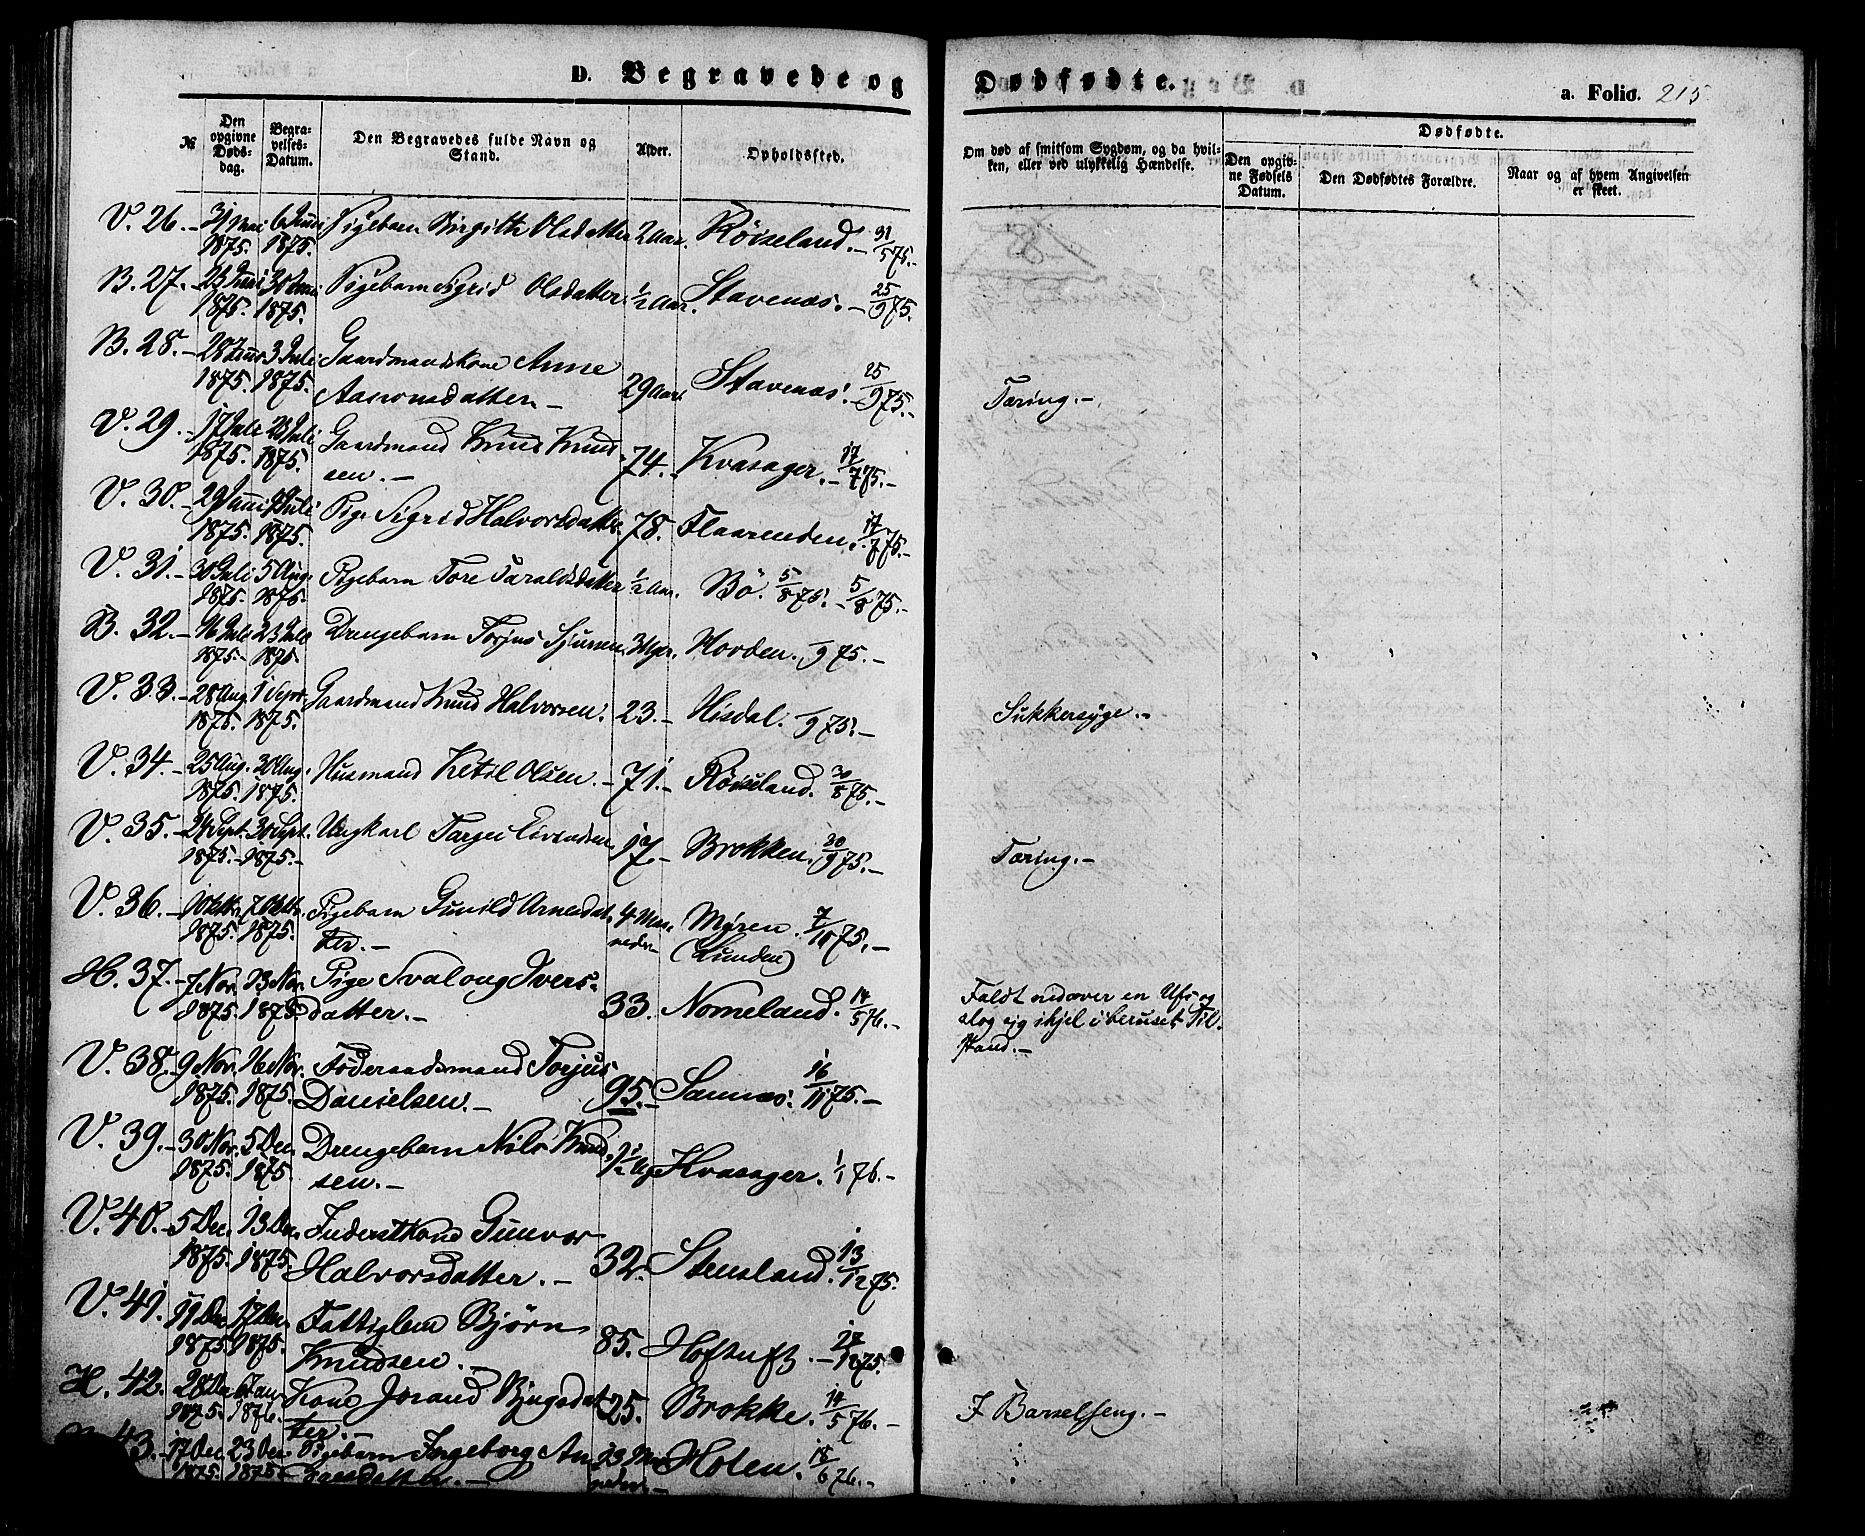 D. Begravede og Dødfødte. a. Folio. 215
№
Den opgivne Døds-dag.
Begra-velses-Datum.
Den Begravedes fulde Navn og Stand.
Alder.
Opholdssted.
Om død af smitsom Sygdom, og da hvil-ken, eller ved ulykkelig Hændelse.
Dødfødte.
Den opgiv-ne Fødsels Datum.
Den Dødfødtes Forældre.
Naar og af hvem Angivelsen er skeet.
V. 26. 31 Mai 1875. 6 Juni 1875. Pigebarn Birgitte Olsdatter 2 Aar. Røiseland. 31/5 75.
B. 27. 23 Juni 1875. 30 Juni 1875. Pigebarn Sigrid Olsdatter. 1/2 Aar. Stavenæs. 25/9 75.
B. 28. 28 Juni 1875. 3 Juli 1875. Gaardmandskone Anne
Aasronsdatter. 29 Aar. Stavenæs. 25/9 75. Tæring.
V. 29. 17 Juli 1875. 23 Juli 1875. Gaardmand Knud Knud
sen. 74. Kvasager. 17/7 75.
V. 30. 29 Juni 1875. Juli 1875. Pige Sigrid Halvorsdatter 78. Flaarenden. 17/7 75.
V. 31. 30 Juli 1875. 5 Aug. 1875. Pigebarn Tore Taraldsdatter 1/2 Aar. Bö. 5/8 75. 5/8 75.
B. 32. 16 Juli 1875. 23 Juli 1875. Drengebarn Torjus Sjursen. Horden. /9 75.
V. 33. 28 Aug. 1875. 1 Septr. 1875. Gaardmand Knud Halvorsen. 23. Hisdal. /9 75. Sukkersyge.
V. 34. 25 Aug. 1875. 30 Aug. 1875. Husmand Ketil Olsen. 71. Røiseland. 30/8 75.
V. 35. 24 Sept. 1875. 30 Sept. 1875. Ungkarl Tarjei Eivindsen 17. Brokken. 30/9 75. Tæring.
V. 36. 1875. 7 Oktbr. 1875. Pigebarn Gunild Arnesdat
ter. 4 Maa neder Myren. (Lunden) 7/10 75.
H. 37. 7 Nov. 1875. 13 Nov. 1875. Pige Svalaug Ivers
datter. 33. Nomeland. 14/5 76. Faldt nedover en Ufs og
slog sig ihjel i beruset Til
stand.
V. 38. 9 Nov. 1875. 16 Nov. 1875. Föderaadsmand Torjus
Danielsen. 95. Sannæs. 16/11 75.
V. 39. 30 Nov. 1875. 5 Dec. 1875. Drengebarn Nils Knud
sen. Kvasager. 1/1 76.
V. 40. 5 Dec. 1875. 13 Dec. 1875. Inderstkone Gunvor
Halvorsdatter. 32. Stensland. 13/12 75.
V. 41. 11 Dec. 1875. 17 Dec. 1875. Fattiglem Björn
Knudsen. 85. Hoftuft. /12 75.
H. 42. 28 Dec 1875. 6 Jan 1876. Kone Jorand Bjugsdat
ter. 25. Brokke. 14/5 76. I Barselseng.
43. 17 Dec 1875. 23 Dec 1875. Pigebarn Ingeborg An
datter. neder. Holen. 18/6 76.